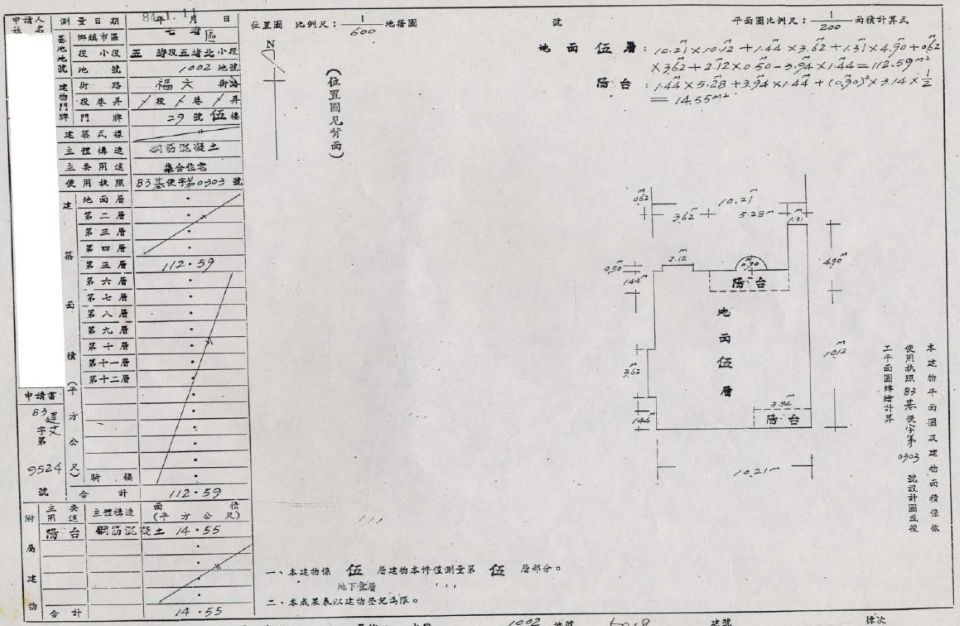 申請人姓名
測量日期 84年1.11月 日
位置圖 比例尺：1/600 地籍圖
號
平面圖比例尺：1/200 面積計算式
基地地號
鄉鎮市區 七堵區
段 小段 五堵段五堵北小段
地號 1002 地號
建物門牌
街路 福六街
段巷弄 段 巷 弄
門牌 29 號 伍樓
建築式樣
主體構造 鋼筋混凝土
主要用途 集合住宅
使用執照 83基使字第0303號
建築面積（平方公尺）
地面層
第二層
第三層
第四層
第三層 112.59
第六層
第七層
第八層
第九層
第十層
第十一層
第十二層
騎樓
合計 112.59
申請書
83
字第
9524
號
附屬建物
主要用途 主體構造 面積（平方公尺）
陽台 鋼筋混凝土 14.55
合計 14.55
N
（位置圖見背面）
地面伍層：10.21×10.12+1.44×3.62+1.31×4.90+0.62
×3.62+2.12×0.50-3.94×1.44=112.59m²
陽台：1.44×5.28+3.94×1.44+(0.90)²×3.14×1/2
=14.55m²
0.62
10.21m
3.62
5.28m
1.31
2.12
0.50
1.44
0.90
陽台
4.90
地面伍層
3.62
10.12
1.44
3.94
陽台
10.21m
本建物平面圖及建物面積係依
使用執照83基使字第0303號設計圖或竣
工平面圖轉繪計算
一、本建物係 伍 層建物本件僅測量第 伍 層部分。
地下壹層
二、本成果表以建物登記為限。
1002 地號 建號 棟次